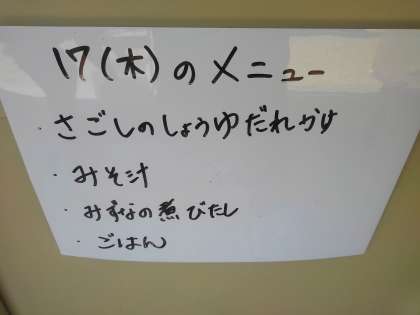 17(木)のメニュー
・さごしのしょうゆだれかけ
・みそ汁
・みずなの煮びたし
・ごはん